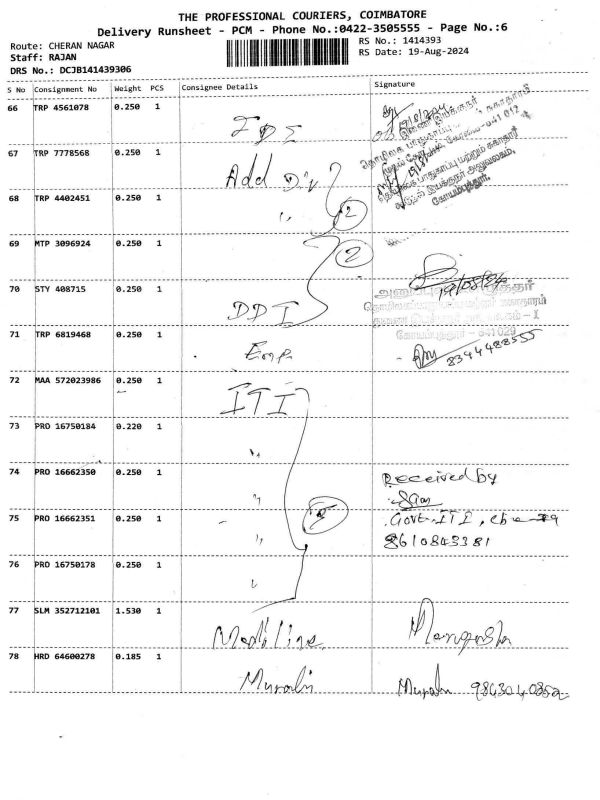 THE PROFESSIONAL COURIERS, COIMBATORE
Delivery Runsheet - PCM - Phone No.:0422-3505555 - Page No.:6
Route: CHERAN NAGAR
RS No.: 1414393
Staff: RAJAN
RS Date: 19-Aug-2024
DRS No.: DCJB141439306
S No Consignment No Weight PCS Consignee Details Signature
66 TRP 4561078 0.250 1
67 TRP 7778568 0.250 1 Add
68 TRP 4402451 0.250 1 " 2
69 MTP 3096924 0.250 1 2
70 STY 408715 0.250 1 DDI 19/08/24
கோயம்புத்தூர் - 641 029
71 TRP 6819468 0.250 1 8344488555
72 MAA 572023986 0.250 1 ITI
73 PRO 16750184 0.220 1 "
74 PRO 16662350 0.250 1 " Received by
Sam
75 PRO 16662351 0.250 1 " Govt. ITI,
8610843381
76 PRO 16750178 0.250 1 "
77 SLM 352712101 1.530 1
78 HRD 64600278 0.185 1 Murali Murali